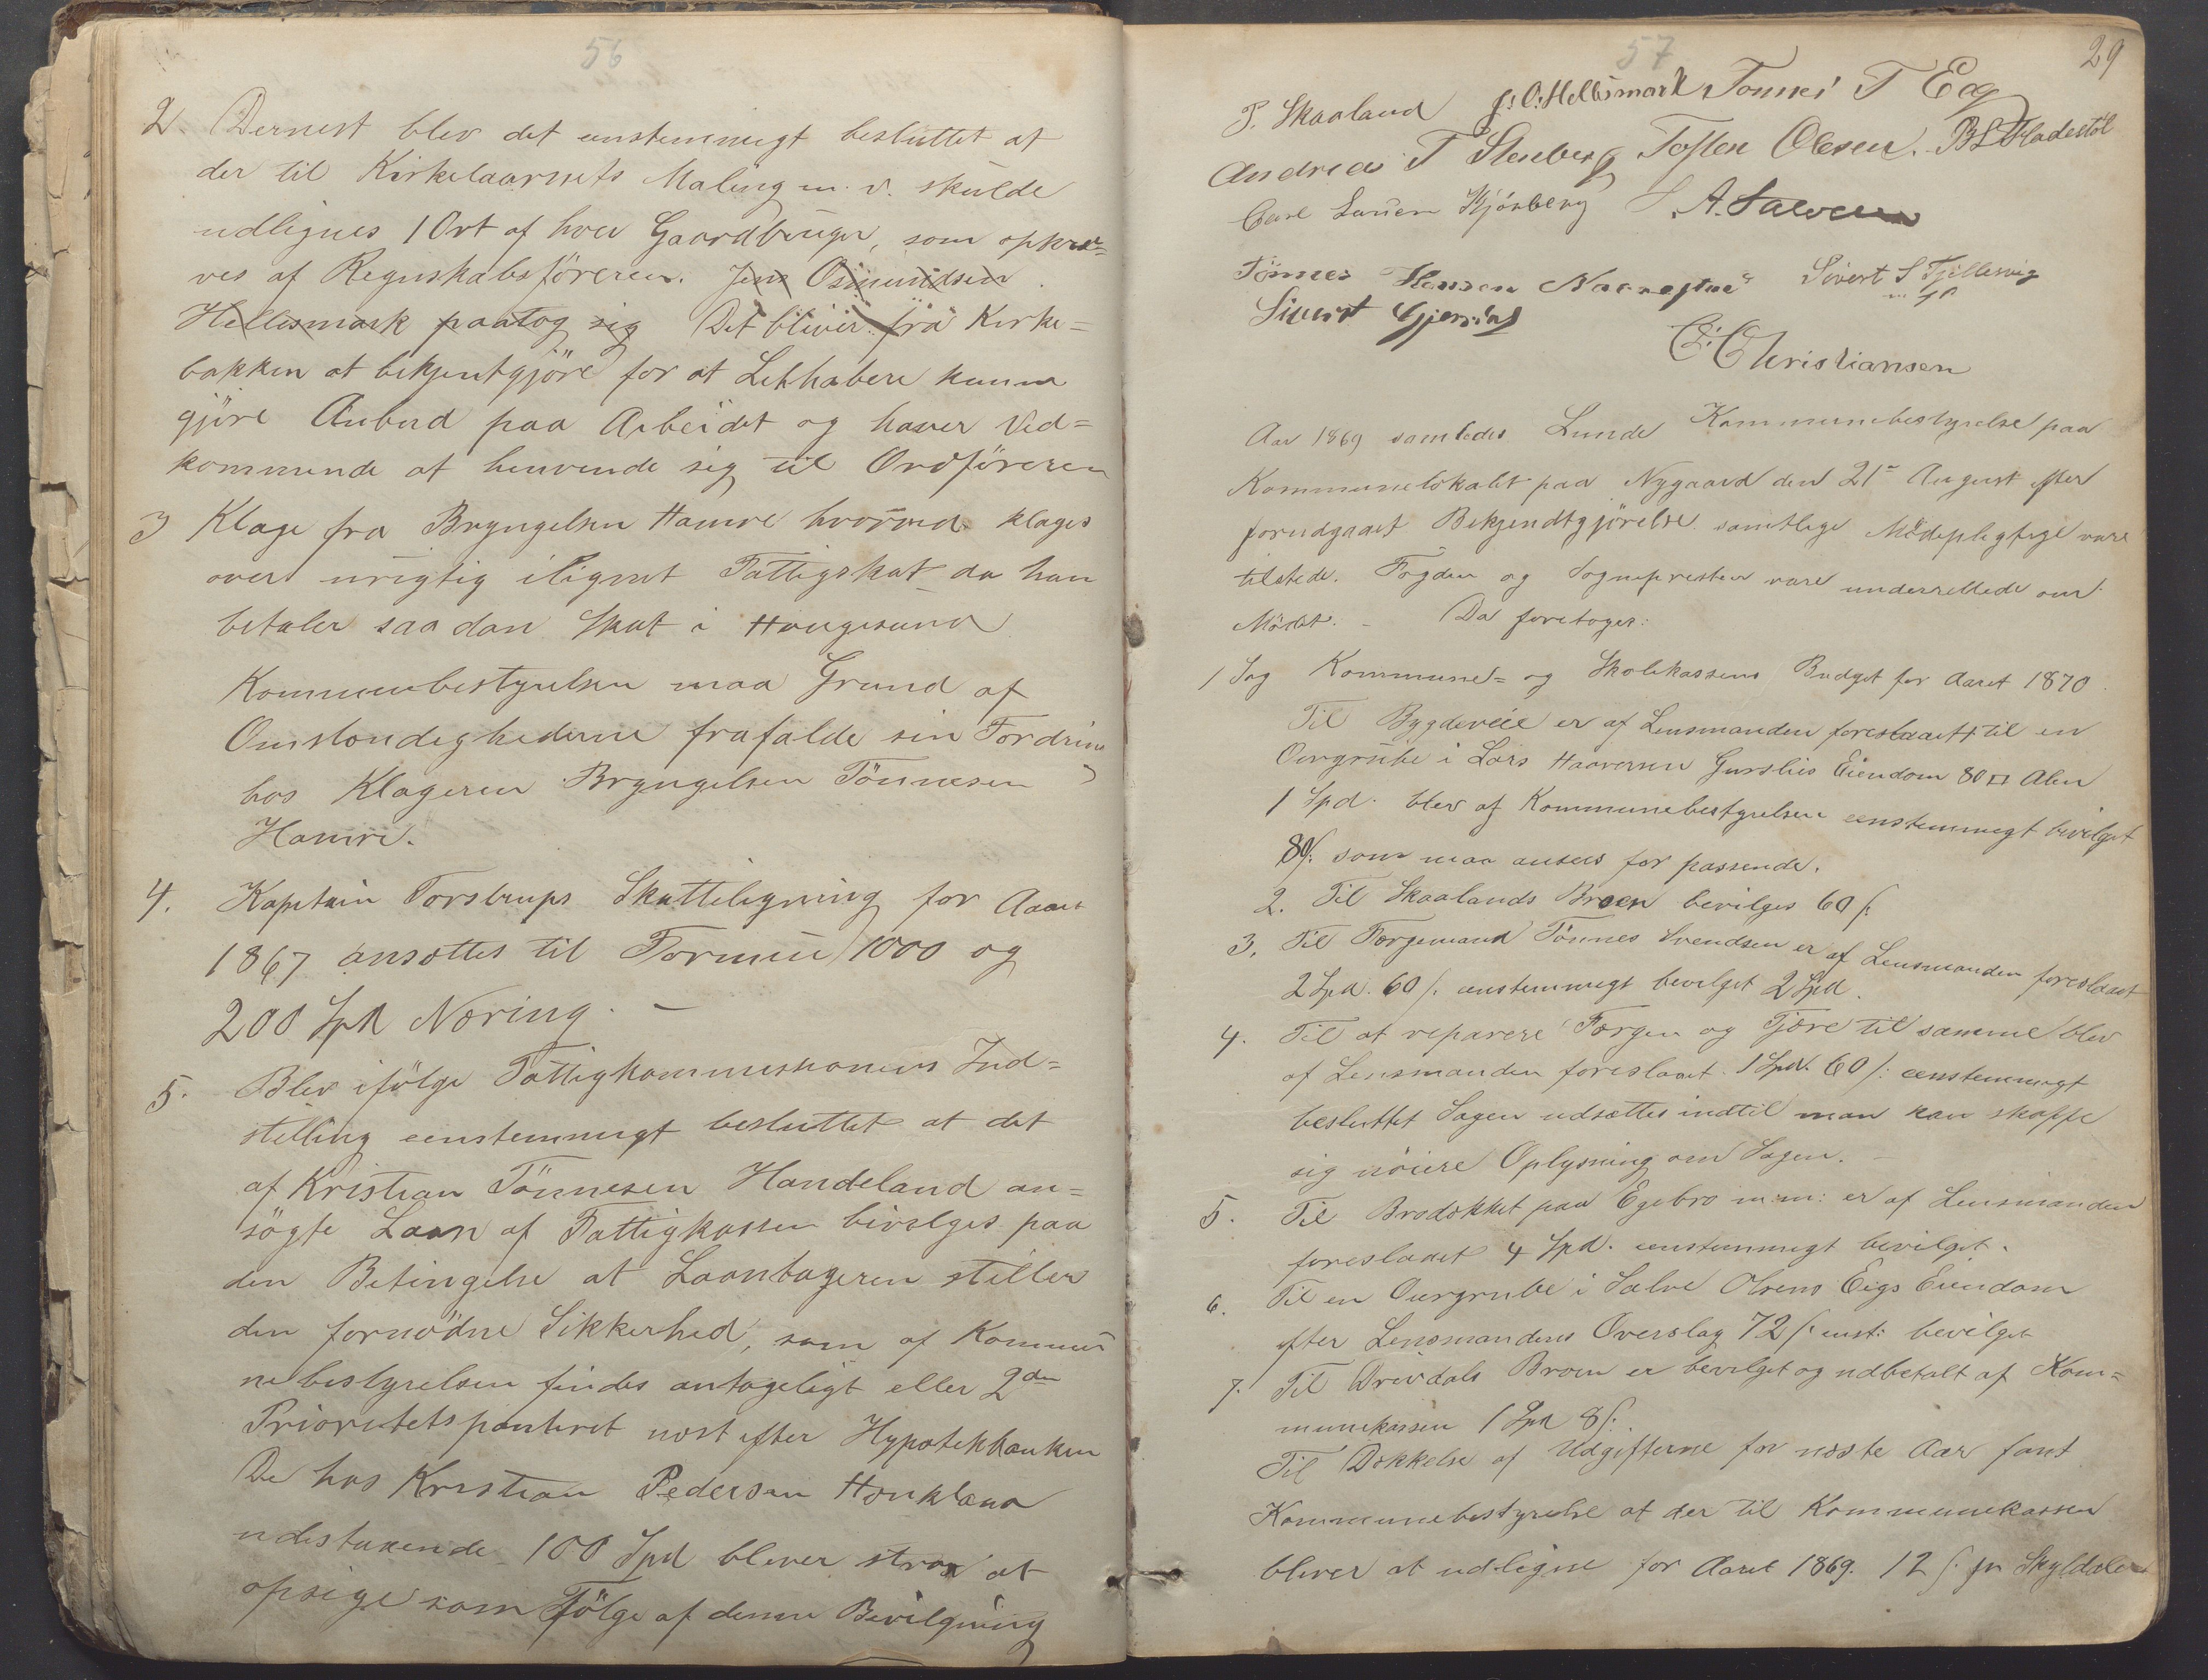 56
2. Dernest blev det eenstemmigt besluttet at
der til Kirkelaarnets Maling m. v. skulde
udlignes 1 Ort af hver Gaardbruger, som opkræ=
ves af Regnskabsföreren. Jens Osmundsen
Hellesmark paatog sig Det bliver fra Kirke=
bakken at bekjentgjöre for at Lekhabere kunne
gjöre Anbud paa Arbeidet og haver Ved=
kommende at henvende sig til Ordföreren
3 Klage fra Bryngelsen Hamre hvorved klages
over urigtig ilignet Fattigskat da han
betaler saadan Skat i Haugesund
Kommunebestyrelsen maa Grund af
Omstændighederne frafalde sin Fordring
hos Klageren Bryngelsen Tönnesen
Hamre.
4. Kaptain Torstrups Skatteligning for Aaret
1867 ansættes til Formue 1000 og
200 Spd Næring. —
5. Blev ifölge Fattigkommissionens Ind=
stilling eenstemmigt besluttet at det
af Kristian Tönnesen Handeland an=
sögte Laan af Fattigkassen bevilges paa
den Betingelse at Laantageren stiller
den fornödne Sikkerhed, som af Kommu
nebestyrelsen findes antageligt eller 2den
Prioritetspanteret næst efter Hypotekbanken
De hos Kristian Pedersen Haukland
udestaaende 100 Spd bliver strax at
opsige som Fölge af denne Bevilgning
57
29
P. Skaaland J: O: Hellesmark Tönnes T Eeg
Andreas T Stenberg Tosten Olesen. B S Skadestöl
Carl Larsen Kjörberg S. A. Salvesen
Tönnes Hansen Sivert S Fjellesvig
Sivert Gjersdal
C: Christiansen
Aar 1869 samledes Lunde Kommunebestyrelse paa
Kommunelokalet paa Nygaard den 21de August efter
forudgaaet Bekjendtgjörelse. samtlige Mödepligtige vare
tilstede. Fogden og Sognepresten vare underrettede om
Mödet. – Da foretoges:
1 Sag Kommune= og Skolekassens Budget for Aaret 1870.
Til Bygdeveie er af Lensmanden foreslaaet til en
Ourgrube i Lars Haaversen Gurslies Eiendom 80 □ Alen
1 Spd. blev af Kommunebestyrelsen eenstemmigt bevilget
80 s: som maa ansees for passende.
2. Til Skaalands Broen bevilges 60 s:
3. Til Færgemand Tönnes Svendsen er af Lensmanden foreslaaet
2 Spd. 60 s: eenstemmigt bevilget 2 Spd.
4. Til at reparere Færgen og Tjære til samme blev
af Lensmanden foreslaaet 1 Spd. 60 s: eenstemmigt
besluttet Sagen udsættes indtil man kan skaffe
sig nöiere Oplysning om Sagen. –
5. Til Brodækket paa Egebro m. m: er af Lensmanden
foreslaaet 4 Spd. eenstemmigt bevilget.
6. Til en Ourgrube i Salve Olsens Eigs Eiendom
efter Lensmandens Overslag 72 s: enst: bevilget
7. Til Drivdals Broen er bevilget og udbetalt af Kom=
munekassen 1 Spd 8 s:
Til Dækkelse af Udgifterne for næste Aar fant
Kommunebestyrelse at der til Kommunekassen
bliver at udligne for Aaret 1869. 12 s. pr Skyldaler